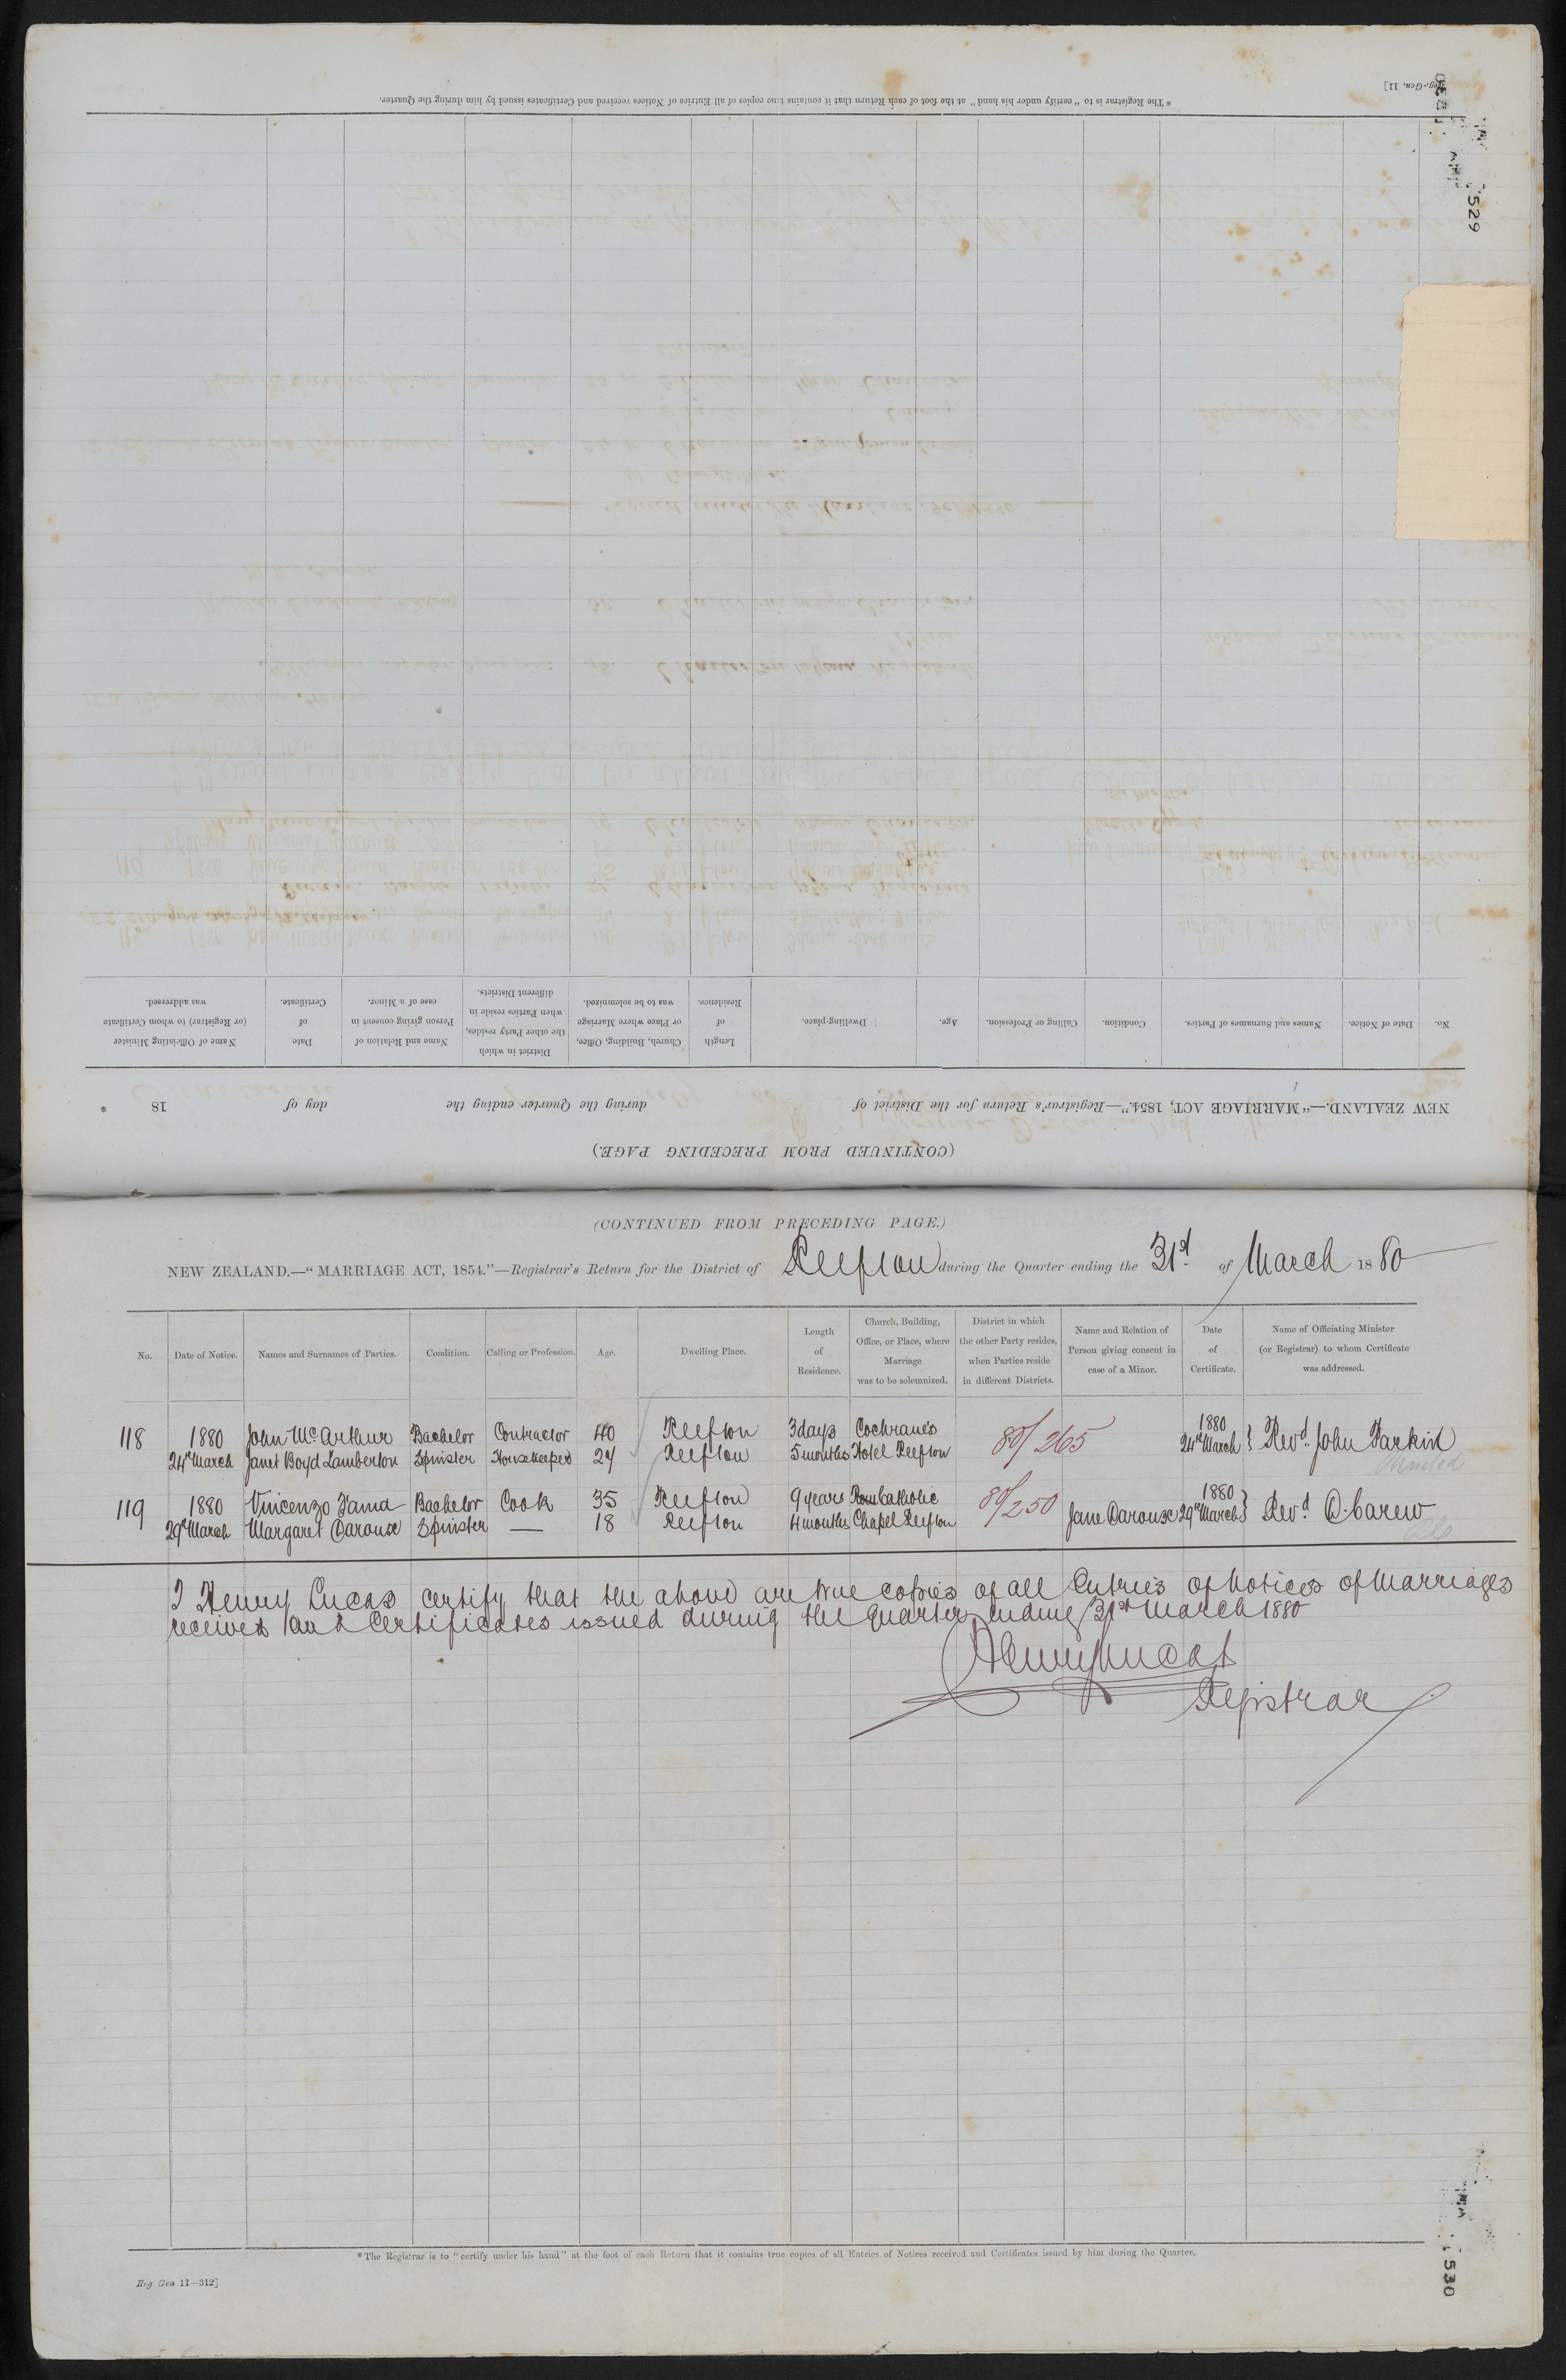 * The Registrar is to "certify under his hand" at the foot of each Return that it contains true copies of all Entries of Notices received and Certificates issued by him during the Quarter.
Reg.-Gen. 11]
529
Name of Officiating Minister (or Registrar) to whom Certificate was addressed.
Date of Certificate.
Name and Relation of Person giving consent in case of a Minor.
District in which the other Party resides, when Parties reside in different Districts.
Church, Building, Office, or Place where Marriage was to be solemnized.
Length of Residence.
Dwelling-place.
Age.
Calling or Profession.
Condition.
Names and Surnames of Parties.
Date of Notice.
No.
NEW ZEALAND.—"MARRIAGE ACT, 1854."—Registrar's Return for the District of during the Quarter ending the day of 18 .
(CONTINUED FROM PRECEDING PAGE.)
(CONTINUED FROM PRECEDING PAGE.)
NEW ZEALAND.—"MARRIAGE ACT, 1854."—Registrar's Return for the District of Reefton during the Quarter ending the 31st of March 1880
No.
Date of Notice.
Names and Surnames of Parties.
Condition.
Calling or Profession.
Age.
Dwelling Place.
Length of Residence.
Church, Building, Office, or Place, where Marriage was to be solemnized.
District in which the other Party resides, when Parties reside in different Districts.
Name and Relation of Person giving consent in case of a Minor.
Date of Certificate.
Name of Officiating Minister (or Registrar) to whom Certificate was addressed.
118 1880 John McArthur Bachelor Contractor 40 Reefton 3 days Cochrane's 80/265 1880 Revd. John
24th March Janet Boyd Lamberton Spinster Housekeeper 24 Reefton 5 months Hotel Reefton 24th March
119 1880 Vincenzo Fama Bachelor Cook 35 Reefton 9 years Rom Catholic 80/250 1880 Revd Carew
29th March Margaret Daroux Spinster — 18 Reefton 4 months Chapel Reefton Jane Daroux 29th March
I Henry Lucas certify that the above are true copies of all Entries of Notices of Marriages
received and Certificates issued during the quarter ending 31st March 1880
Henry Lucas
Registrar
* The Registrar is to "certify under his hand" at the foot of each Return that it contains true copies of all Entries of Notices received and Certificates issued by him during the Quarter.
Reg Gen 11—312]
530